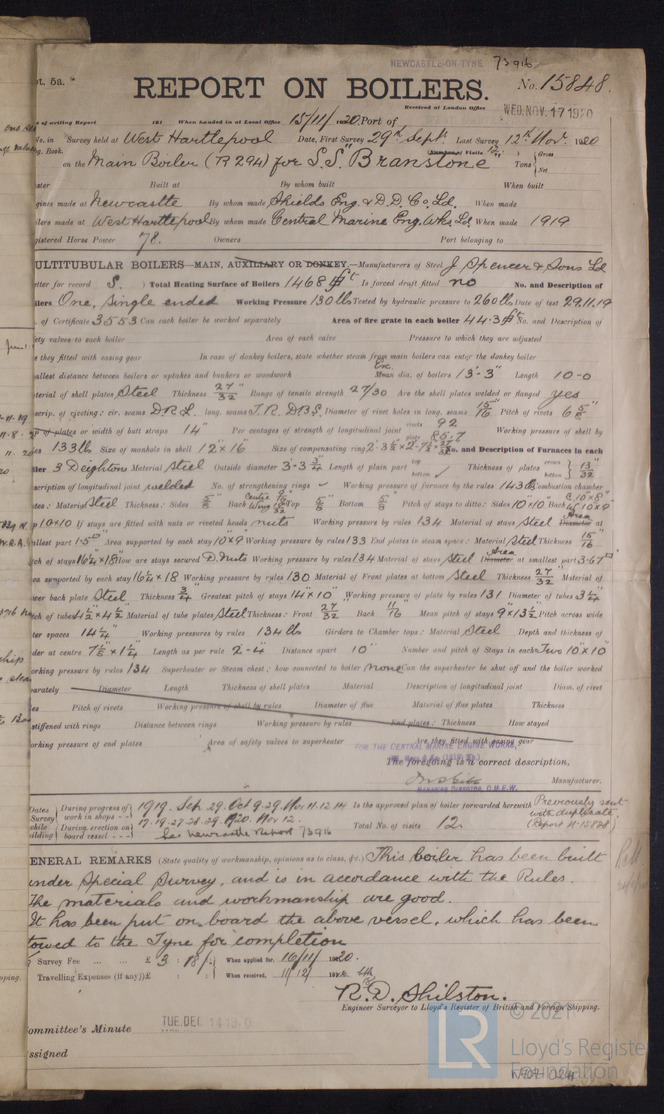 NEWCASTLE-ON-TYNE 73916
pt. 5a.
REPORT ON BOILERS.
No. 15848.
Received at London Office WED. NOV. 17 1920
of writing Report 191 When handed in at Local Office 15/11/1920 Port of
No. in Survey held at West Hartlepool Date, First Survey 29th Septr Last Survey 12th Novr. 1920
Book. on the Main Boiler (R 294) for S.S. "Branstone" Tons { Gross Net
Built at By whom built When built
gines made at Newcastle By whom made Shields Eng. & D.D. Co. Ld. When made
ilers made at West Hartlepool By whom made Central Marine Eng. Wks. Ld. When made 1919
gistered Horse Power 78. Owners Port belonging to
ULTITUBULAR BOILERS—MAIN, AUXILIARY OR DONKEY.—Manufacturers of Steel J. Spencer & Sons Ld
etter for record S. ) Total Heating Surface of Boilers 1468 sq ft Is forced draft fitted no No. and Description of
ilers One, single ended Working Pressure 130 lb Tested by hydraulic pressure to 260 lb Date of test 29.11.19
of Certificate 3553 Can each boiler be worked separately Area of fire grate in each boiler 44.3 sq ft No. and Description of
ety valves to each boiler Area of each valve Pressure to which they are adjusted
e they fitted with easing gear In case of donkey boilers, state whether steam from main boilers can enter the donkey boiler
allest distance between boilers or uptakes and bunkers or woodwork Mean dia. of boilers 13'-3" Length 10-0
aterial of shell plates Steel Thickness 27/32" Range of tensile strength 27/30 Are the shell plates welded or flanged yes
scrip. of riveting: cir. seams D.R.L. long. seams T.R. D.B.S. Diameter of rivet holes in long. seams 15/16" Pitch of rivets 6 5/8"
of plates or width of butt straps 14" Per centages of strength of longitudinal joint rivets 92 plate 85.7 Working pressure of shell by
es 133 lb Size of manhole in shell 12" x 16" Size of compensating ring No. and Description of Furnaces in each
iler 3 Deightons Material steel Outside diameter 3-3 3/4" Length of plain part top bottom Thickness of plates crown bottom 13/32"
escription of longitudinal joint welded No. of strengthening rings Working pressure of furnace by the rules 143 lb Combustion chamber
ates: Material Steel Thickness: Sides 5/8" Back Top 5/8" Bottom 5/8" Pitch of stays to ditto: Sides 10" x 10" Back
op 10x10 If stays are fitted with nuts or riveted heads nuts Working pressure by rules 134 Material of stays Steel Diameter at Area
allest part Area supported by each stay 10" x 9" Working pressure by rules 133 End plates in steam space: Material Steel Thickness 15/16"
tch of stays 16 1/4" x 18" How are stays secured D. Nuts Working pressure by rules 134 Material of stays Steel Diameter Area at smallest part 3.67 sq"
ea supported by each stay 16 1/4 x 18 Working pressure by rules 130 Material of Front plates at bottom Steel Thickness 27/32" Material of
wer back plate Steel Thickness 3/4" Greatest pitch of stays 14" x 10" Working pressure of plate by rules 131 Diameter of tubes 3 1/4"
ch of tubes 4 1/2" x 4 1/2" Material of tube plates Steel Thickness: Front 27/32" Back 11/16" Mean pitch of stays 9" x 13 1/2" Pitch across wide
ter spaces 14 1/4" Working pressures by rules 134 lb Girders to Chamber tops: Material Steel Depth and thickness of
der at centre 7 1/8" x 1 1/4" Length as per rule 2-4 Distance apart 10" Number and pitch of Stays in each Two 10" x 10"
orking pressure by rules 134 Superheater or Steam chest; how connected to boiler none Can the superheater be shut off and the boiler worked
parately Diameter Length Thickness of shell plates Material Description of longitudinal joint Diam. of rivet
les Pitch of rivets Working pressure of shell by rules Diameter of flue Material of flue plates Thickness
stiffened with rings Distance between rings Working pressure by rules End plates: Thickness How stayed
orking pressure of end plates Area of safety valves to superheater Are they fitted with easing gear
FOR THE CENTRAL MARINE ENGINE WORKS,
The foregoing is a correct description,
Manufacturer.
MANAGING DIRECTOR, C.M.E.W.
Dates Survey while ilding { During progress of work in shops - - 1919. Sep. 29. Oct 9.29. Nov 11.12.14 Is the approved plan of boiler forwarded herewith Previously sent with duplicate.
{ During erection on board vessel - - - 17.19.27.28.29. 1920. Nov 12. Total No. of visits 12. (Report No 15828)
See Newcastle Report 73916
ENERAL REMARKS (State quality of workmanship, opinions as to class, &c.) This boiler has been built
under Special Survey, and is in accordance with the Rules.
The materials and workmanship are good.
It has been put on board the above vessel, which has been
towed to the Tyne for completion
Survey Fee ... ... £ 3 : 18/- : When applied for, 16/11/1920.
Travelling Expenses (if any) £ : : When received, 11/12/
R. D. Shilston.
Engineer Surveyor to Lloyd's Register of British and Foreign Shipping.
ommittee's Minute TUE. DEC 14 1920
ssigned
© 2021
LR
Lloyd's Register
Foundation